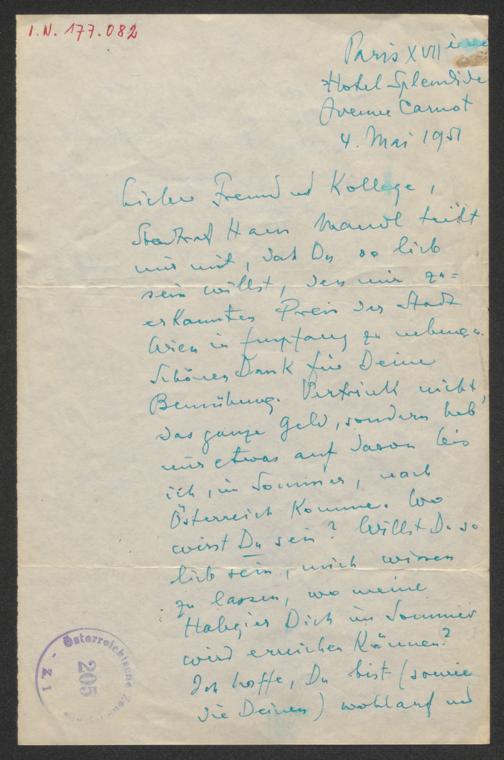 I.N. 177.082
Paris XVII ième
Hotel Splendide
Avenue Carnot
4. Mai 1951
Lieber Freund und Kollege,
Stadtrat Hans Mandl teilt
mir mit, dass Du so lieb
sein willst, den mir zu=
erkannten Preis der Stadt
Wien in Empfang zu nehmen.
Schönen Dank für Deine
Bemühung. Vertrink nicht
das ganze Geld, sondern heb'
mir etwas auf davon bis
ich, im Sommer, nach
Österreich komme. Wo
wirst Du sein? Willst Du so
lieb sein, mich wissen
zu lassen, wo meine
Habgier Dich im Sommer
wird erreichen können?
Ich hoffe, Du bist (sowie
die Deinen) wohlauf und
- Österreichische
205